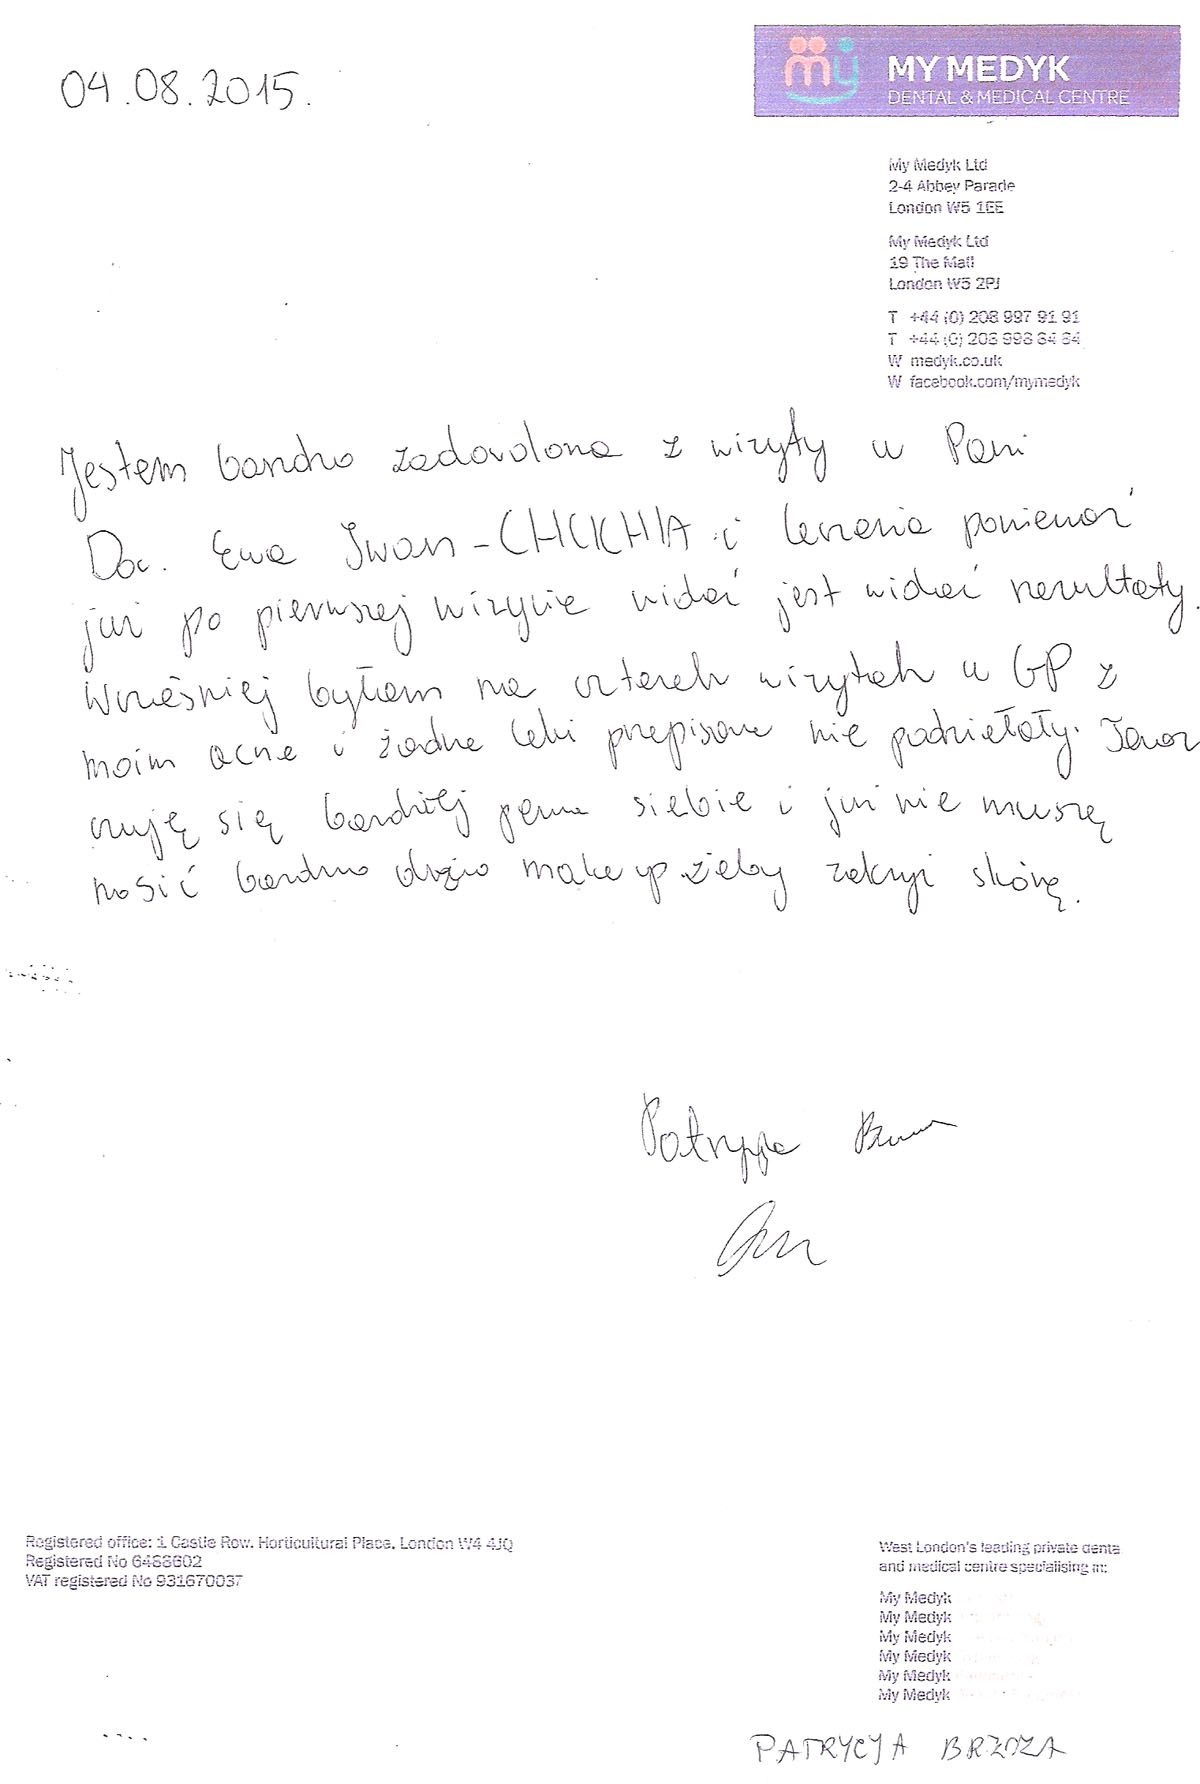 04.08.2015.
my MY MEDYK
DENTAL & MEDICAL CENTRE
My Medyk Ltd
2-4 Abbey Parade
London W5 1EE
My Medyk Ltd
19 The Mall
London W5 2PJ
T +44 (0) 208 997 91 91
T +44 (0) 208 998 84 84
W medyk.co.uk
W facebook.com/mymedyk
Jestem bardzo zadowolona z wizyty u Pani
Doc. Ewa Iwan-CHCKHIA i leczenia ponieważ
już po pierwszej wizycie widać jest widać rezultaty.
Wcześniej byłam na czterech wizytach u GP z
moim acne i żadne leki przepisane nie podziełały. Teraz
czuję się bardziej pewna siebie i już nie muszę
nosić bardzo dużo make up żeby zakryć skórę.
Patrycja
Registered office: 1 Castle Row, Horticultural Place, London W4 4JQ
Registered No 6488602
VAT registered No 931670037
West London's leading private denta
and medical centre specialising in:
My Medyk
My Medyk
My Medyk
My Medyk
My Medyk
My Medyk
PATRYCJA BRZOZA